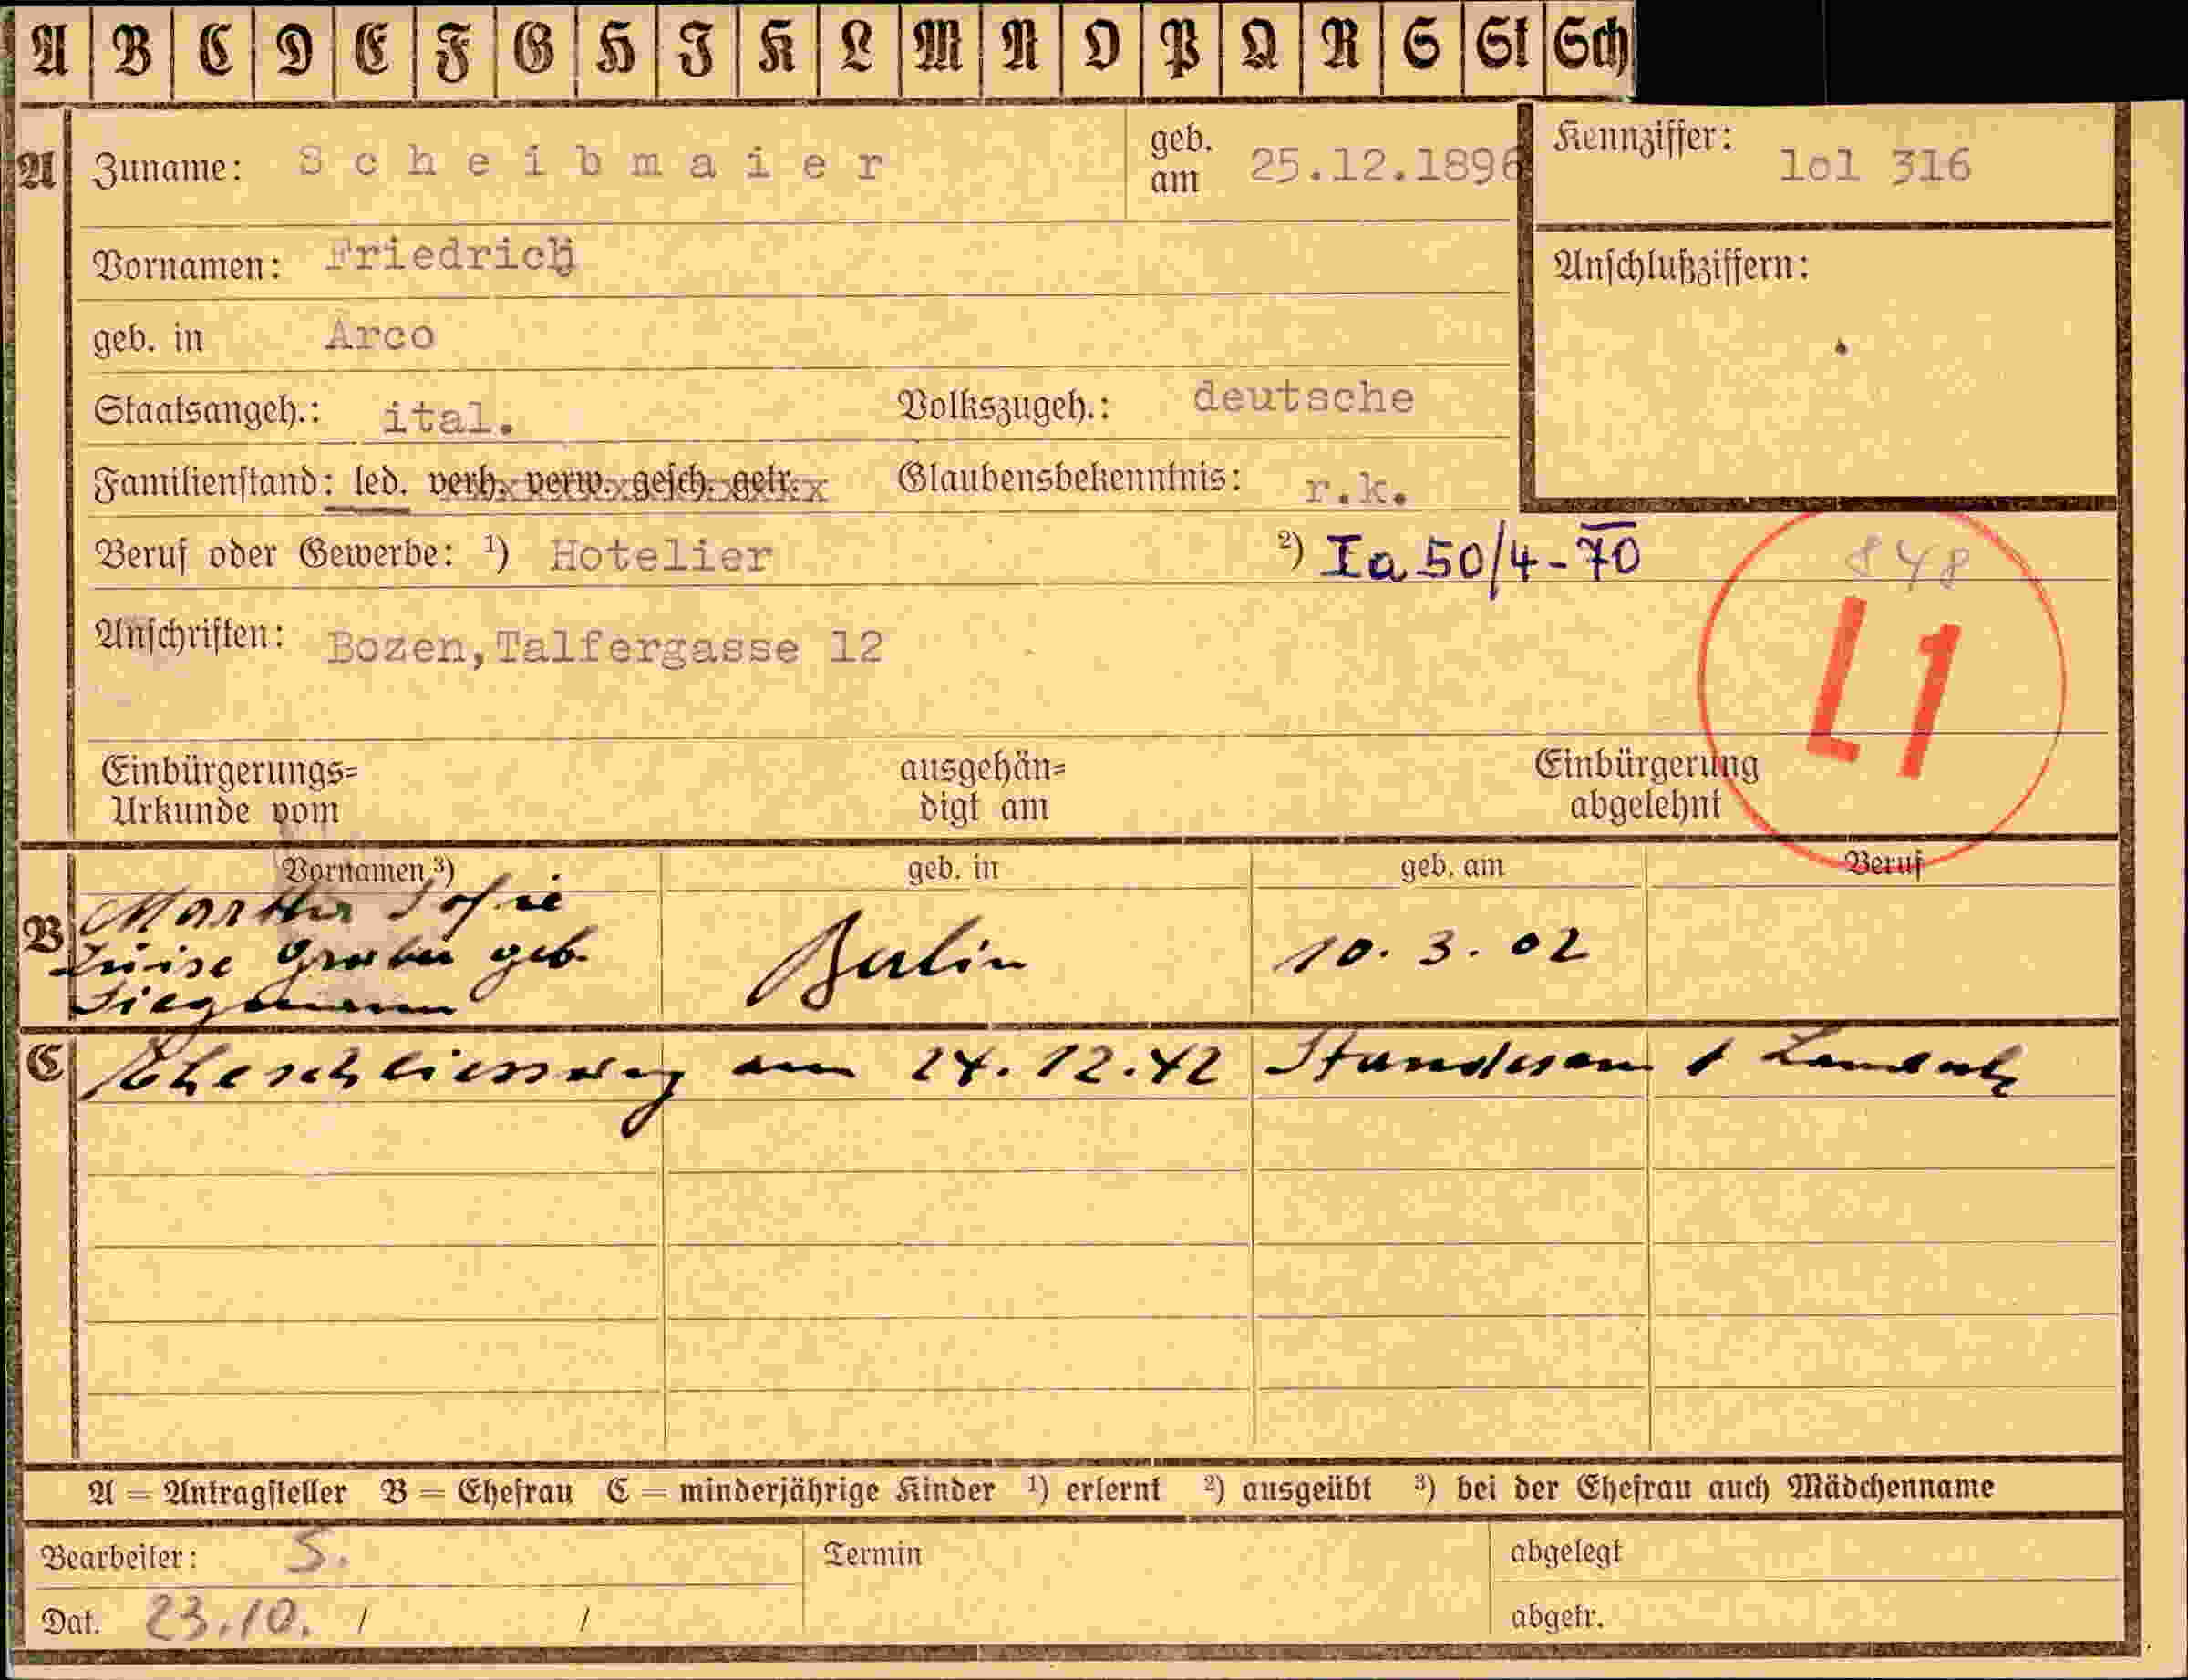 A B C D E F G H J K L M N O P Q R S St Sch
A Zuname: Scheibmaier geb. am 25.12.1896 Kennziffer: lol 316
Vornamen: Friedrich Anschlußziffern:
geb. in Arco
Staatsangeh.: ital. Volkszugeh.: deutsche
Familienstand: led. verh. verw. gesch. getr. Glaubensbekenntnis: r.k.
Beruf oder Gewerbe: ¹) Hotelier ²) Ia 50/4-70 848
Anschriften: Bozen, Talfergasse 12
L1
Einbürgerungs= ausgehän= Einbürgerung
Urkunde vom digt am abgelehnt
Vornamen ³) geb. in geb. am Beruf
Martha Sofie
B Luise Gruber geb. Berlin 10. 3. 02
Siegmann
C Eheschliessung am 24. 12. 42 Standesamt
A = Antragsteller B = Ehefrau C = minderjährige Kinder ¹) erlernt ²) ausgeübt ³) bei der Ehefrau auch Mädchenname
Bearbeiter: S. Termin abgelegt
Dat. 23.10. / / abgetr.